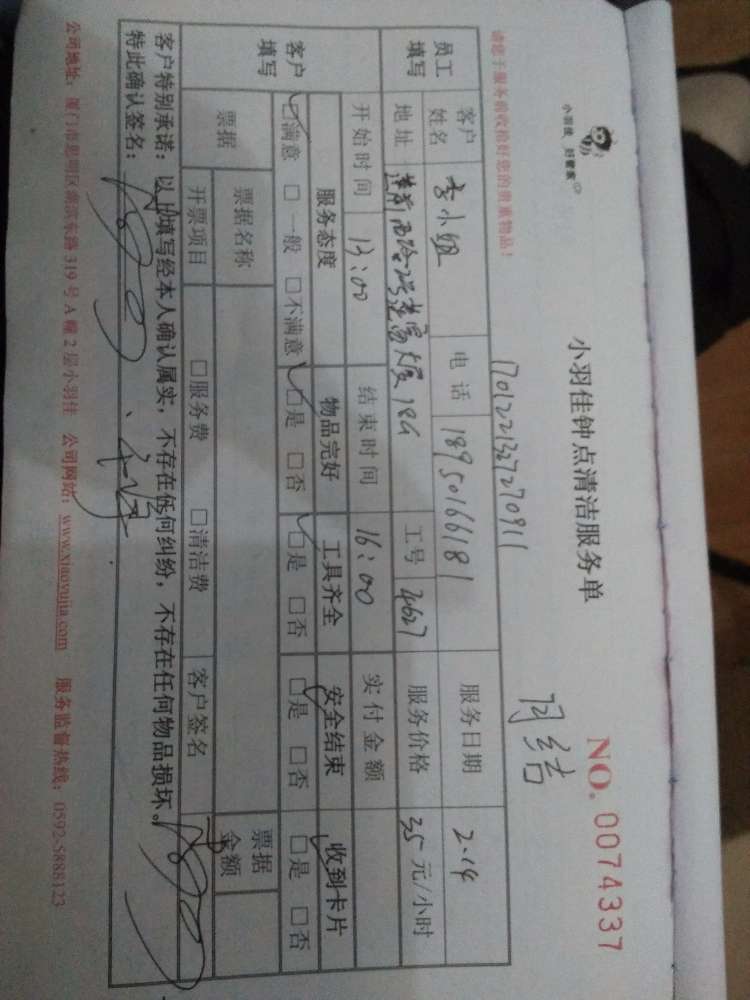 小羽佳 好管家
小羽佳钟点清洁服务单
NO. 0074337
请您于服务前收拾好您的贵重物品！
1701221327270911
月结
员工填写
客户姓名 李小姐 电话 18950166181 服务日期 2.14
地址 莲前西路2号莲富大厦18G 工号 4627 服务价格 35元/小时
开始时间 13:00 结束时间 16:00 实付金额
客户填写
服务态度 物品完好 工具齐全 安全结束 收到卡片
☑满意 □一般 □不满意 ☑是 □否 ☑是 □否 ☑是 □否 ☑是 □否
票据 票据名称 票据金额
开票项目 □服务费 □清洁费 客户签名
客户特别承诺：以上填写经本人确认属实，不存在任何纠纷，不存在任何物品损坏。
特此确认签名：
公司地址：厦门市思明区湖滨东路319号A幢2层小羽佳 公司网站：www.xiaoyujia.com 服务监督热线：0592-5888123